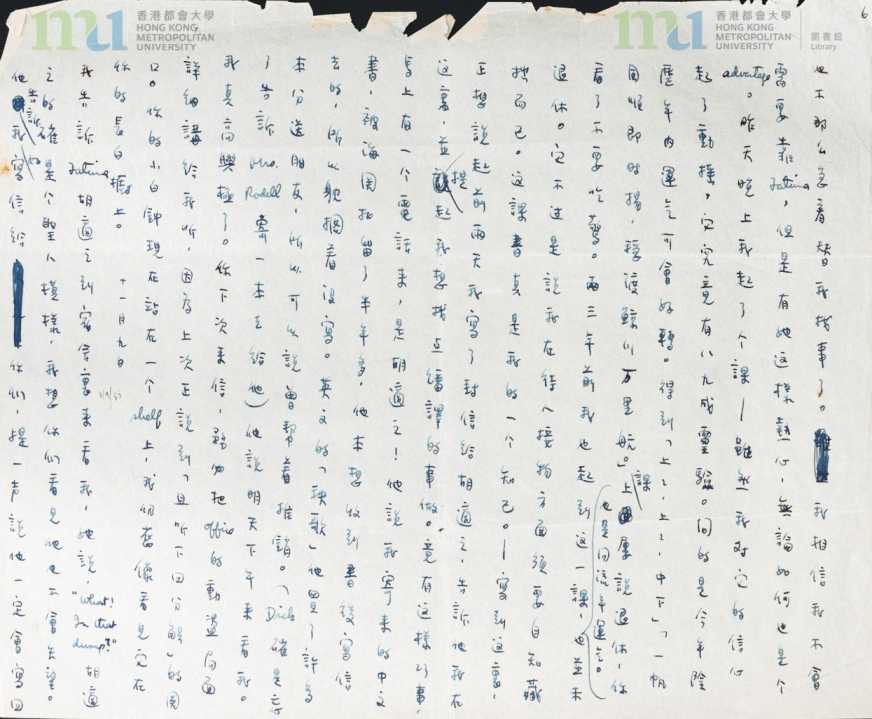 香港都會大學
HONG KONG
METROPOLITAN
UNIVERSITY
香港都會大學
HONG KONG
METROPOLITAN
UNIVERSITY
圖書館
Library
6
也不那么急着替我找事了。我相信我不會
需要去找Fatima,但是有她這樣熱心,無論如何也是个
advantage。昨天晚上我起了个課—雖然我對它的信心
起了動搖,它究竟有八九成靈驗。問的是今年陰
歷年內運氣可會好轉。得到「上上,上上,中下」「一帆
風順即時揚,穩渡鯨川万里航。」上課屢說退休,你
看了不要吃驚。兩三年前我也起到這一課,也並未
也是問這年運氣。
退休。它不过是說我在待人接物方面須要自知藏
拙而已。這課書真是我的一个知己。—寫到這裏,
正想說起前兩天我寫了封信給胡適之,告訴他我在
這裏,並提起我想找点繙譯的事做。竟有這樣巧事,
馬上有一个電話來,是胡適之!他說我寄來的中文
書,被海関扣留了半年多,他本想收到書後寫信
去的,所以躭擱着沒寫。英文的「秧歌」他買了許多
本分送朋友,所以可以說曾帮着推銷。(Dick確是忘
了告訴Mrs. Rodell寄一本去給他)他說明天下午來看我。
我真高興極了。你下次來信,務必把office的動盪局面
詳細講給我听,因為上次正說到「且听下回分解」的関
口。你的小白鐘現在站在一个shelf上,我仍舊像看見它在
你的長白櫃上。 十一月九日
我告訴Fatima胡適之到宿舍裏來看我,她說,“What! In that dump?” 胡適
之的確是个聖人模樣,我想你們看見他也不會失望。
他告訴我寫信給你們,提一声說他一定會寫回